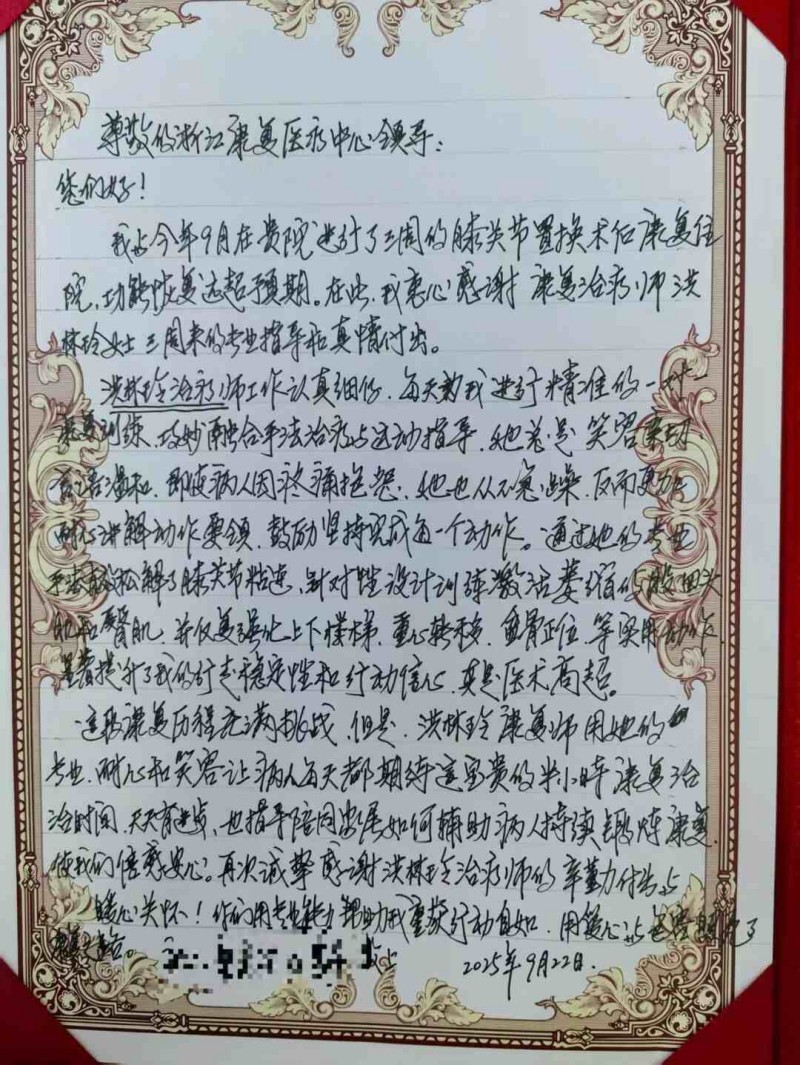 尊敬的浙江康复医疗中心领导：
您们好！
我于今年9月在贵院进行了三周的膝关节置换术后康复住
院，功能恢复远超预期。在此，我衷心感谢 康复治疗师洪
林玲女士三周来的专业指导和真情付出。
洪林玲治疗师工作认真细仔，每天教我进行精准的一对一
康复训练，巧妙融合手法治疗与运动指导，她总是笑容亲切
言语温和，即使病人因疼痛抱怨，她也从不急躁，反而更加
耐心讲解动作要领，鼓励坚持完成每一个动作。通过她的专业
手法松解了膝关节粘连，针对性设计训练激活萎缩的股四头
肌和臀肌，并反复强化上下楼梯，重心转移，骨正位，等实用动作，
显著提升了我的行走稳定性和行动信心，真是医术高超。
这段康复历程充满挑战，但是，洪林玲康复师用她的
专业、耐心和笑容让病人每天都期待这宝贵的半小时康复治
治时间，天天有进步，也指导陪同家属如何辅助病人持续锻炼康复，
使我们倍感安心。再次诚挚感谢洪林玲治疗师的辛勤付出与
暖心关怀！你们用专业能力帮助我重获行动自如，用爱心与
2025年9月22日.